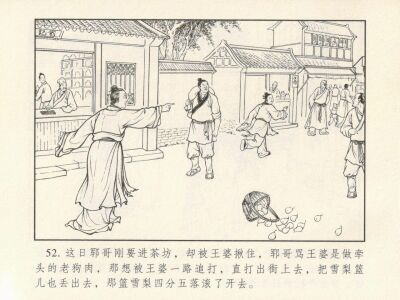 52. 这日郓哥刚要进茶坊，却被王婆揪住，郓哥骂王婆是做牵
头的老狗肉，那想被王婆一路追打，直打出街上去，把雪梨篮
儿也丢出去，那篮雪梨四分五落滚了开去。